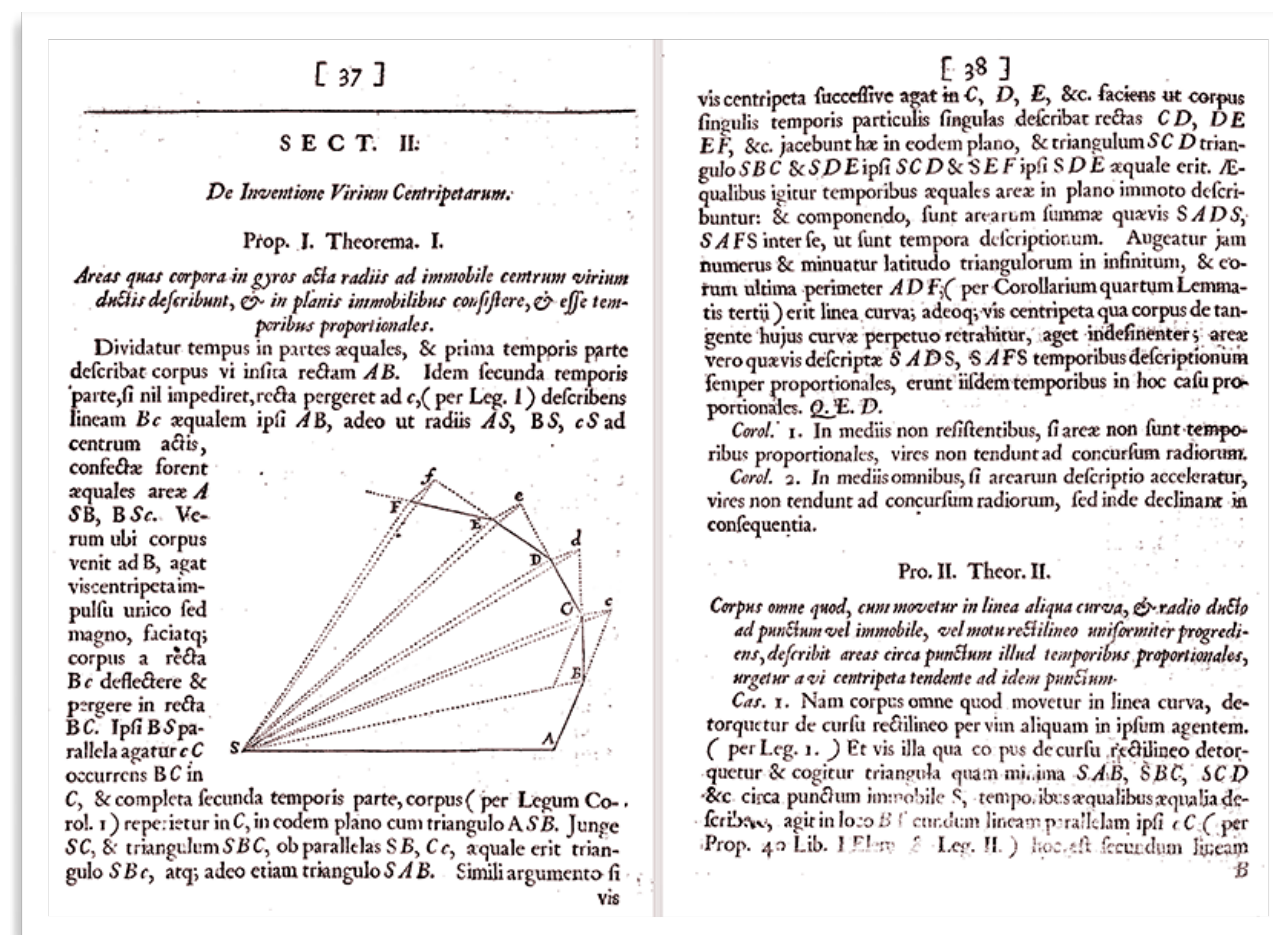 [ 37 ]
SECT. II.
De Inventione Virium Centripetarum.
Prop. I. Theorema. I.
Areas quas corpora in gyros acta radiis ad immobile centrum virium
ductis describunt, & in planis immobilibus consistere, & esse tem-
poribus proportionales.
Dividatur tempus in partes æquales, & prima temporis parte
describat corpus vi insita rectam AB. Idem secunda temporis
parte, si nil impediret, recta pergeret ad c, ( per Leg. 1 ) describens
lineam Bc æqualem ipsi AB, adeo ut radiis AS, BS, cS ad
centrum actis,
confectæ forent
æquales areæ A
SB, BSc. Ve-
rum ubi corpus
venit ad B, agat
vis centripeta im-
pulsu unico sed
magno, faciatq;
corpus a recta
Bc deflectere &
pergere in recta
BC. Ipsi BS pa-
rallela agatur cC
occurrens BC in
C, & completa secunda temporis parte, corpus ( per Legum Co-
rol. 1 ) reperietur in C, in eodem plano cum triangulo ASB. Junge
SC, & triangulum SBC, ob parallelas SB, Cc, æquale erit trian-
gulo SBc, atq; adeo etiam triangulo SAB. Simili argumento si
vis
f
F
E
e
D
d
C
c
B
S
A
[ 38 ]
vis centripeta successive agat in C, D, E, &c. faciens ut corpus
singulis temporis particulis singulas describat rectas CD, DE
EF, &c. jacebunt hæ in eodem plano, & triangulum SCD trian-
gulo SBC & SDE ipsi SCD & SEF ipsi SDE æquale erit. Æ-
qualibus igitur temporibus æquales areæ in plano immoto descri-
buntur: & componendo, sunt arearum summæ quævis SADS,
SAFS inter se, ut sunt tempora descriptionum. Augeatur jam
numerus & minuatur latitudo triangulorum in infinitum, & eo-
rum ultima perimeter ADF, ( per Corollarium quartum Lemma-
tis tertii ) erit linea curva; adeoq; vis centripeta qua corpus de tan-
gente hujus curvæ perpetuo retrahitur, aget indefinenter; areæ
vero quævis descriptæ SADS, SAFS temporibus descriptionum
semper proportionales, erunt iisdem temporibus in hoc casu pro-
portionales. Q. E. D.
Corol. 1. In mediis non resistentibus, si areæ non sunt tempo-
ribus proportionales, vires non tendunt ad concursum radiorum.
Corol. 2. In mediis omnibus, si arearum descriptio acceleratur,
vires non tendunt ad concursum radiorum, sed inde declinant in
consequentia.
Pro. II. Theor. II.
Corpus omne quod, cum movetur in linea aliqua curva, & radio ducto
ad punctum vel immobile, vel motu rectilineo uniformiter progredi-
ens, describit areas circa punctum illud temporibus proportionales,
urgetur a vi centripeta tendente ad idem punctum.
Cas. 1. Nam corpus omne quod movetur in linea curva, de-
torquetur de cursu rectilineo per vim aliquam in ipsum agentem.
( per Leg. 1. ) Et vis illa qua co pus de cursu rectilineo detor-
quetur & cogitur triangula quam minima SAB, SBC, SCD
&c. circa punctum immobile S, temporibus æqualibus æqualia de-
agit in loco B lineam parallelam ipsi cC ( per
Prop. 40 Lib. I Leg. II. ) hoc est secundum lineam
B